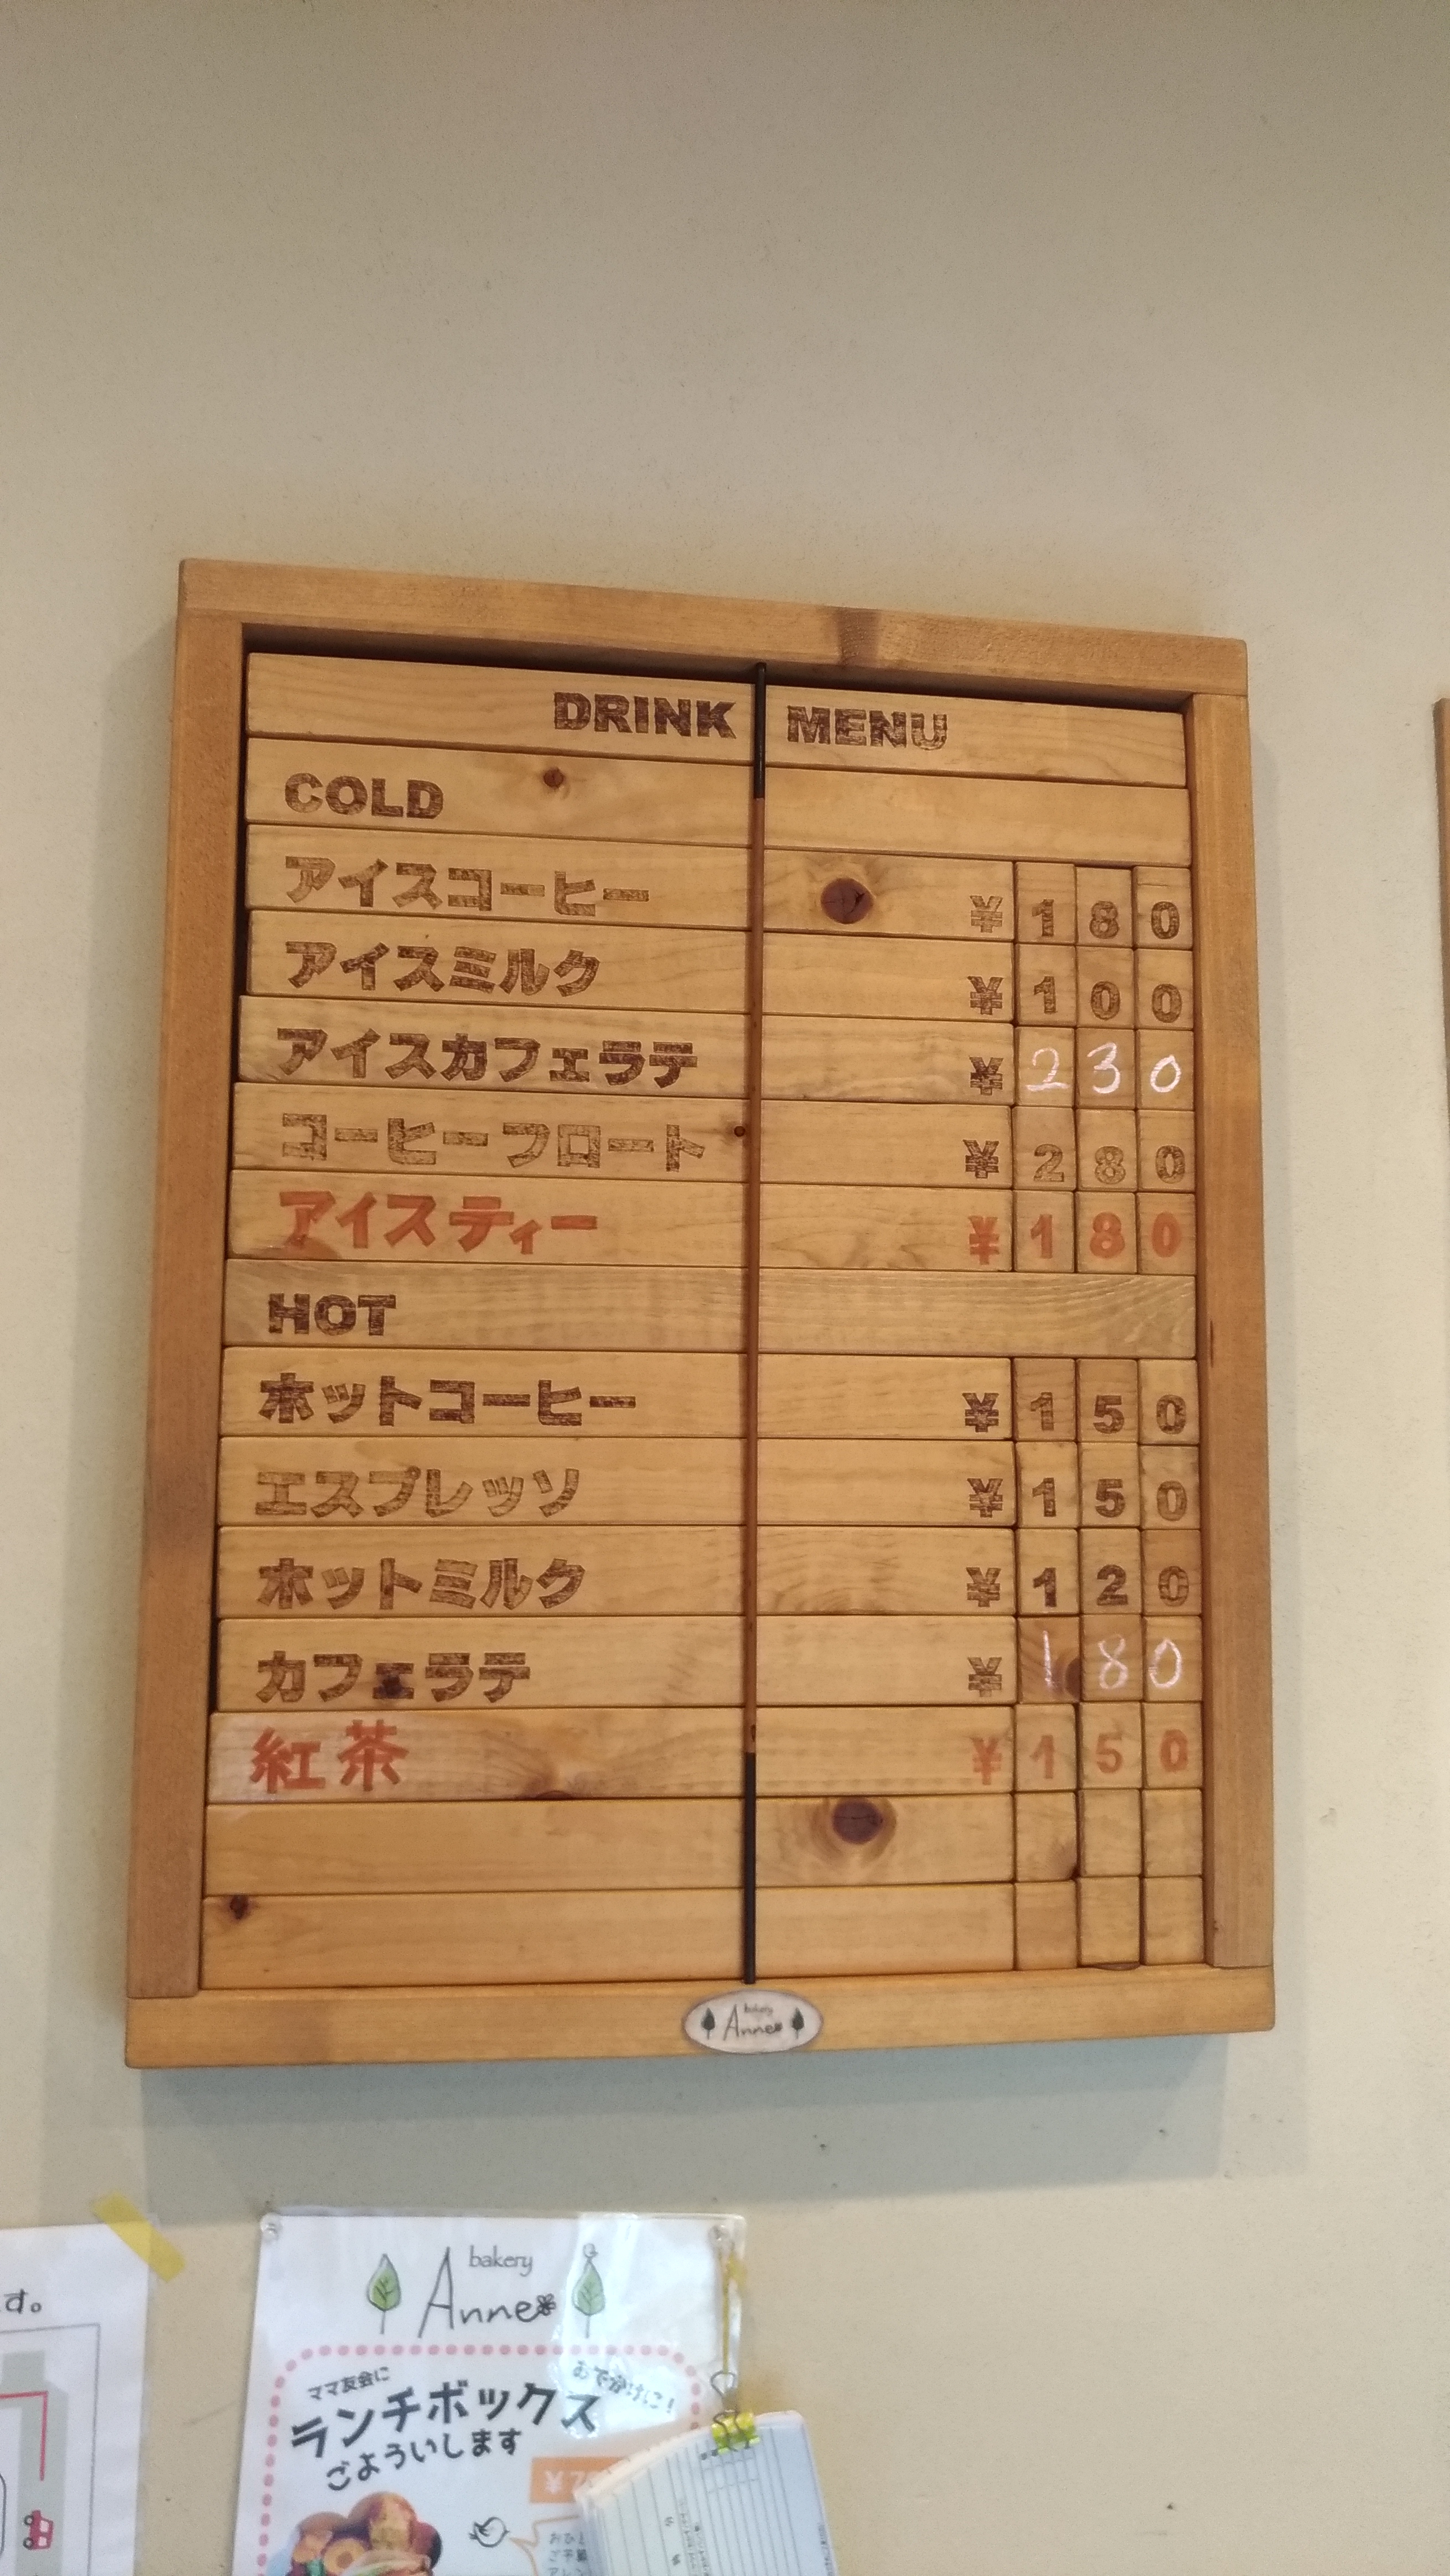 DRINK MENU
COLD
アイスコーヒー ¥180
アイスミルク ¥100
アイスカフェラテ ¥230
コーヒーフロート ¥280
アイスティー ¥180
HOT
ホットコーヒー ¥150
エスプレッソ ¥150
ホットミルク ¥120
カフェラテ ¥180
紅茶 ¥150
bakery
Anne
す。
bakery
Anne
ママ友会に
おでかけに!
ランチボックス
ごよういします